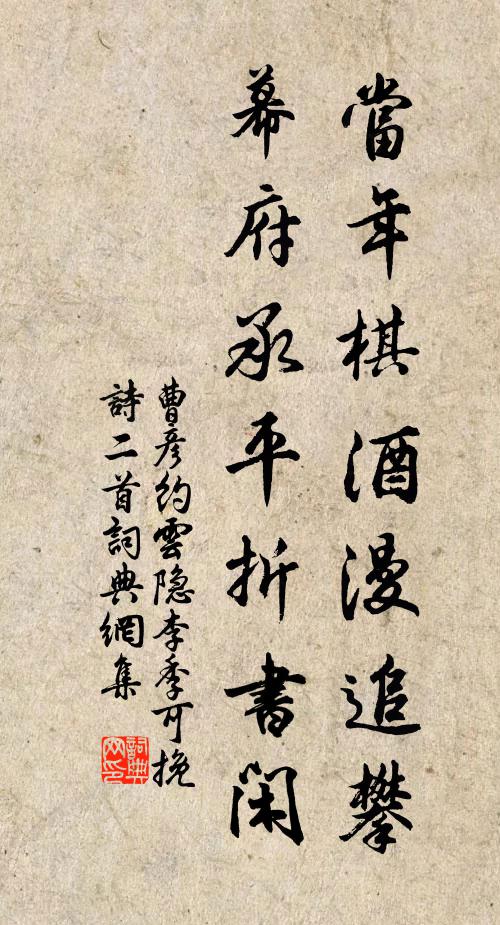 當年棋酒漫追攀
幕府承平折書閑
曹彥約雲隐李季可挽
詩二首詞典網集
詞典網印